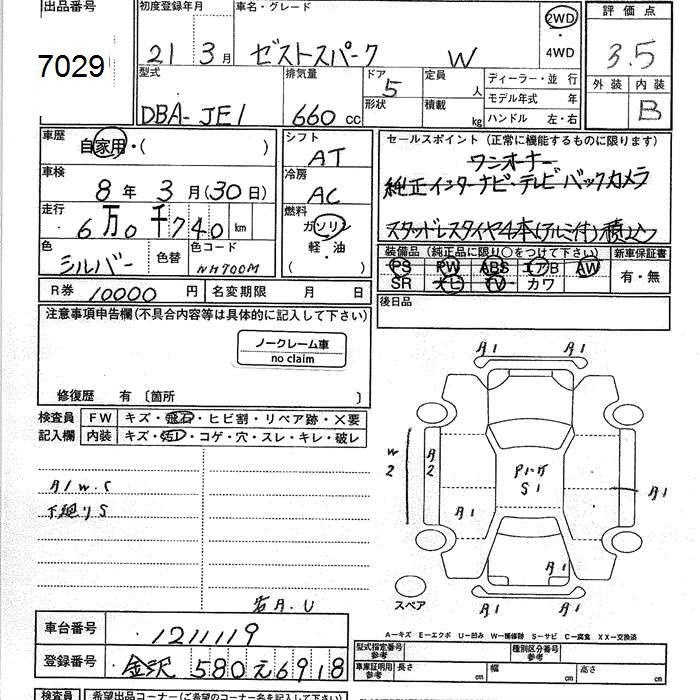 出品番号 初度登録年月 車名・グレード 2WD 評価点
7029 21 3月 ゼストスパーク W ・ 3.5
4WD
型式 排気量 ドア 5 定員 人 ディーラー・並行 外装 内装
DBA-JE1 660 cc 形状 積載 kg モデル年式 年 B
ハンドル 左・右
車歴 自家用・( ) シフト AT セールスポイント (正常に機能するものに限ります)
ワンオーナー
車検 8年 3月(30日) 冷房 AC 純正インターナビ・テレビ バックカメラ
走行 6万0千740 km 燃料 ガソリン スタッドレスタイヤ4本(アルミ付)積込
軽・油
( )
色 シルバー 色替 色コード NH700M 装備品 (純正品に限り○をつけて下さい) 新車保証書
PS PW ABS エアB AW 有・無
SR ナビ TV カワ
R券 10000円 名変期限 月 日 後日品
注意事項申告欄(不具合内容等は具体的に記入して下さい)
ノークレーム車
no claim
修復歴 有 〔箇所 〕
検査員 FW キズ・飛石・ヒビ割・リペア跡・×要
記入欄 内装 キズ・汚レ・コゲ・穴・スレ・キレ・破レ
A1 A1
W2 A2 S1 A1
A1W.S
下廻りS
A1
A1
A1 A1
スペア
A.U
車台番号 1211119
A―キズ E―エクボ U―凹み W―補修跡 S―サビ C―腐食 XX―交換済
登録番号 金沢 580 え 6918
型式指定番号 参考 種別区分番号 参考
車庫証明用 参考 長さ cm 幅 cm 高さ cm
検査員 希望出品コーナー(ご希望のコーナー名を記入して下さい)